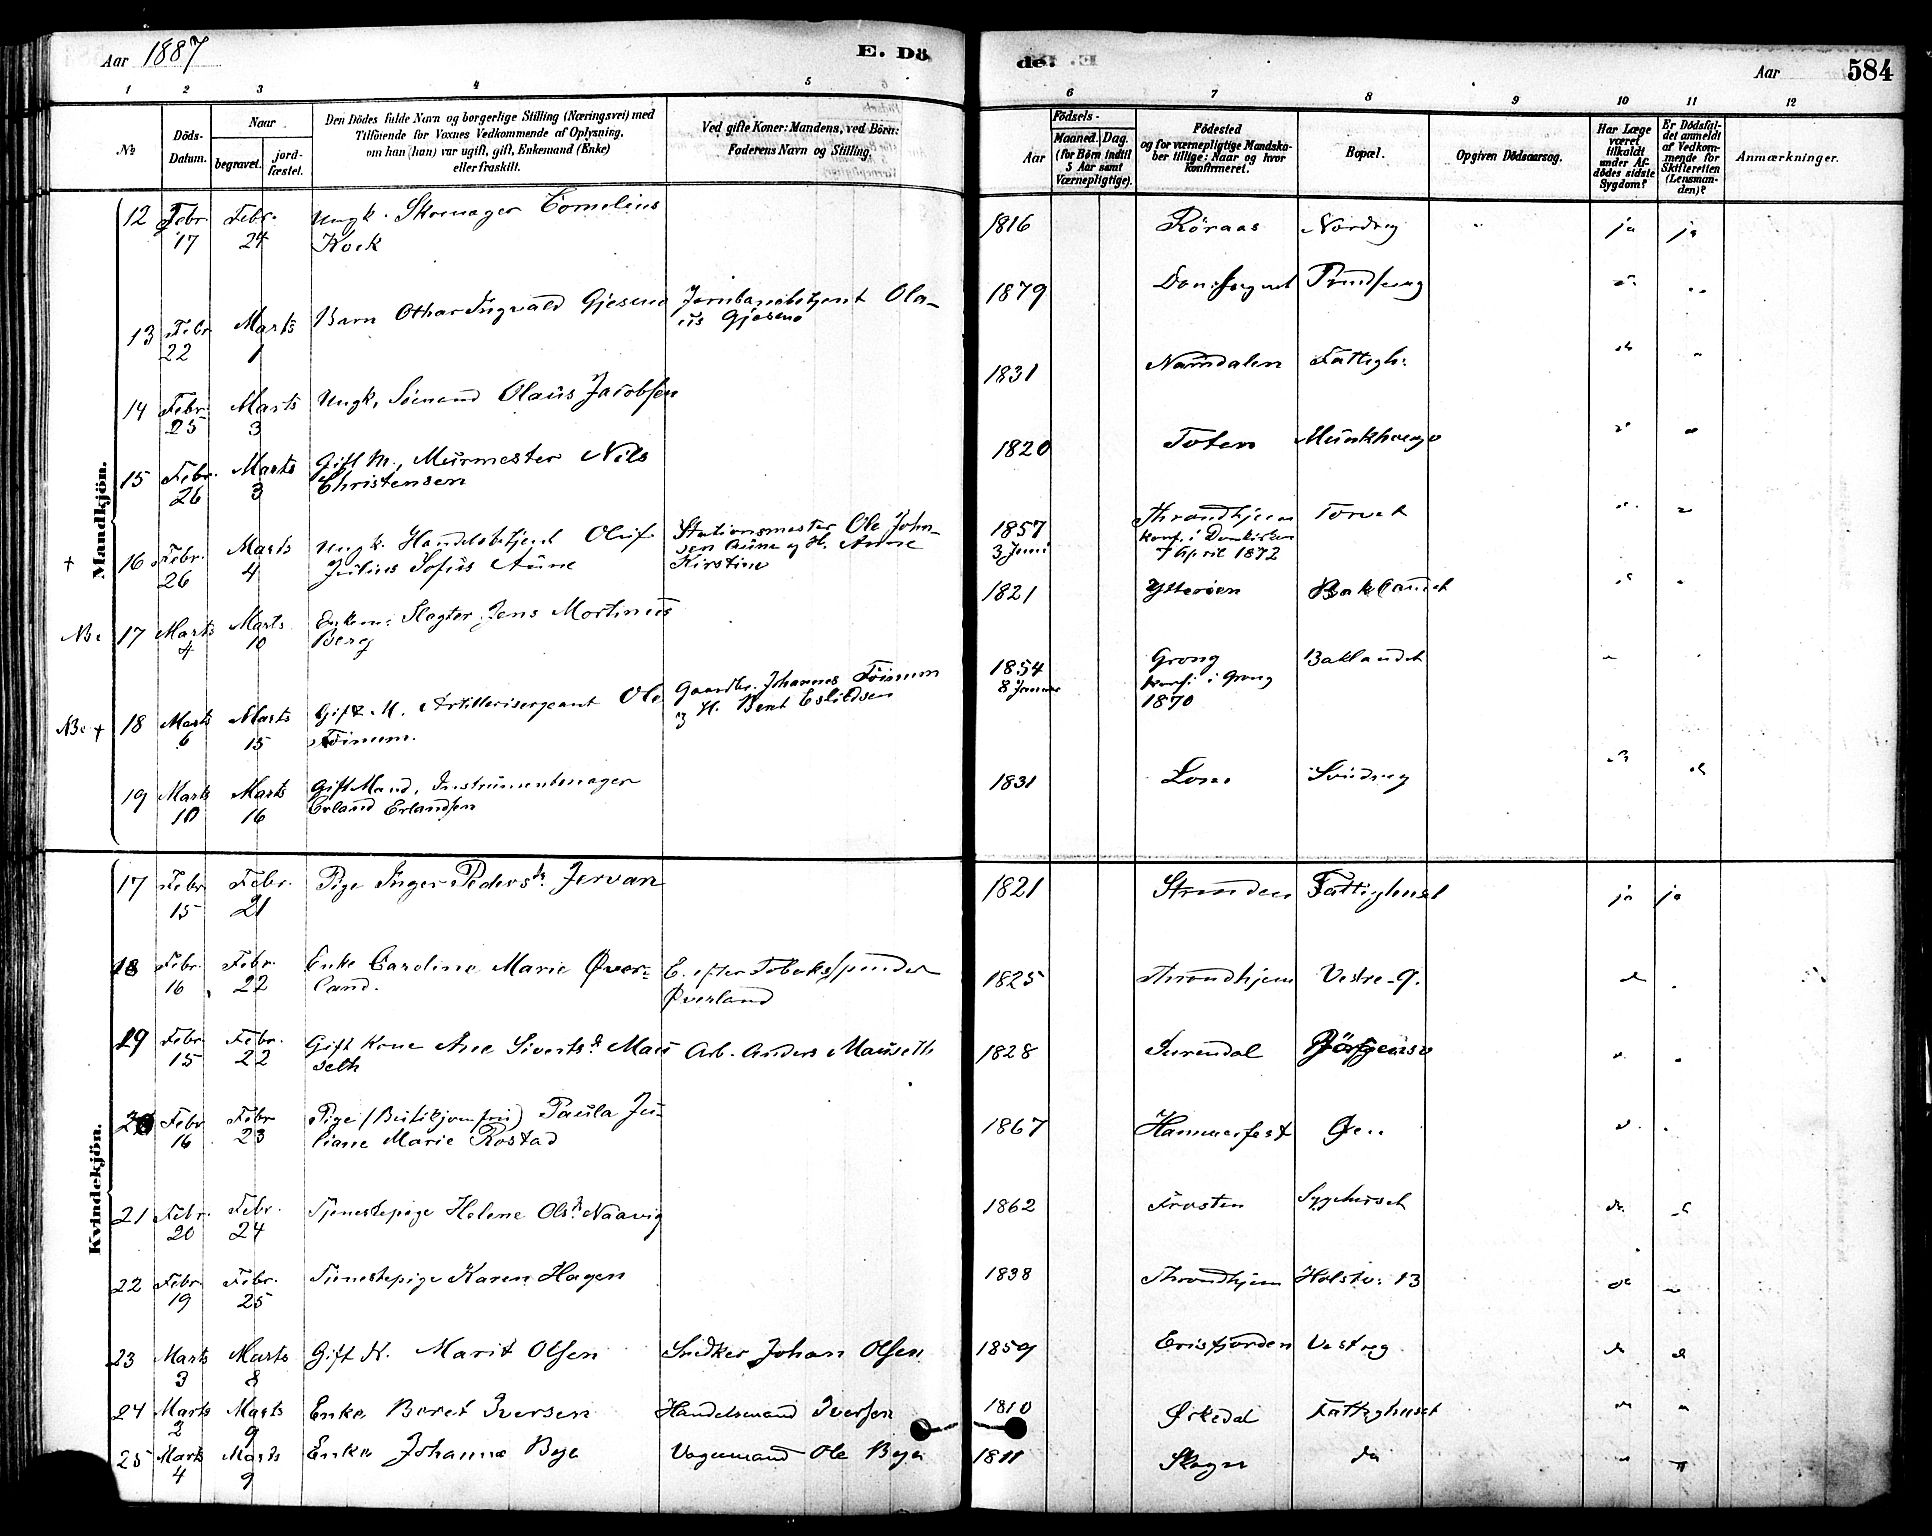 Aar 1887
E. Dö
de.
Aar
584
1 2 3 4 5 6 7 8 9 10 11 12
No
Döds-
Datum.
Naar
begravet.
jord-
fæstet.
Den Dödes fulde Navn og borgerlige Stilling (Næringsvei) med
Tilföiende for Voxnes Vedkommende af Oplysning,
om han (hun) var ugift, gift, Enkemand (Enke)
eller fraskilt.
Ved gifte Koner: Mandens, ved Börn:
Faderens Navn og Stilling.
Födsels-
Aar
Maaned. Dag.
(for Börn indtil
5 Aar samt
Værnepligtige).
Födested
og for værnepligtige Mandska-
ber tillige: Naar og hvor
konfirmeret.
Bopæl.
Opgiven Dödsaarsag.
Har Læge
været
tilkaldt
under Af-
dödes sidste
Sygdom?
Er Dödsfal-
det anmeldt
af Vedkom-
mende for
Skifteretten
(Lensman-
den)?
Anmærkninger.
Mandkjön.
12 Febr. 17 Febr. 24 Ungk. Skomager Cornelius
Kock
1816 Röraas Nordreg ja ja
13 Febr. 22 Marts 1 Barn Othar Ingvald Gjesenø Jernbanebetjent Ola-
us Gjesenø
1879 Domsognet
14 Febr. 25 Marts 3 Ungk. Sömand Olaus Jacobsen
1831 Namdalen Fattigh:
15 Febr. 26 Marts 3 Gift M., Murmester Nils
Christensen
1820 Toten
+ 16 Febr. 26 Marts 4 Ungk. Handelsbetjent Oluf
Julius Sofus Aune
Stationsmester Ole John-
sen Aune og H. Anne
Kirstine
1857
3 Juni
Throndhjem
konf. i Domkirken
7 April 1872
Torvet
17 Marts 4 Marts 10 Enkem: Slagter Jens Martinus
Berg
1821 Ytterøen Baklandet
+ 18 Marts 6 Marts 15 Gift M. Artillerisergeant Ole
Föinum.
Gaardbr. Johannes Föinum
1854
Grong
konf. i Grong
1870
Baklandet
19 Marts 10 Marts 16 Gift Mand, Instrumentmager
Erland Erlandsen
1831 Lom
Kvindekjön.
17 Febr. 15 Febr. 21 Pige Inger Pedersdr. Jervan
1821 Strinden Fattighuset ja ja
18 Febr. 16 Febr. 22 Enke Caroline Marie Øver-
land.
E. efter Tobaksspinder
Øverland
1825 Throndhjem Vestre-g.
19 Febr. 15 Febr. 22 Gift Kone Ane Sivertsd. Mau
seth
Arb. Anders Mauseth
1828 Surendal
20 Febr. 16 Febr. 23 Pige (Butikjomfru) Paula Ju-
liane Marie Rostad
1867 Hammerfest Øen
21 Febr. 20 Febr. 24 Tjenestepige Helene Olsd. Naavig
1862 Frosten Sygehuset do
22 Febr. 19 Febr. 25 Tienestepige Karen Hagen
1838 Throndhjem Holstv: 13 do
23 Marts 3 Marts 8 Gift K. Marit Olsen Snedker Johan Olsen
1859 Erisfjorden Vestreg. do do
24 Marts 2 Marts 9 Enke Beret Iversen Handelsmand Iversen
1810 Ørkedal Fattighuset
25 Marts 4 Marts 9 Enke Johanna Bye Vognmand Ole Bye
1811 Skogn do